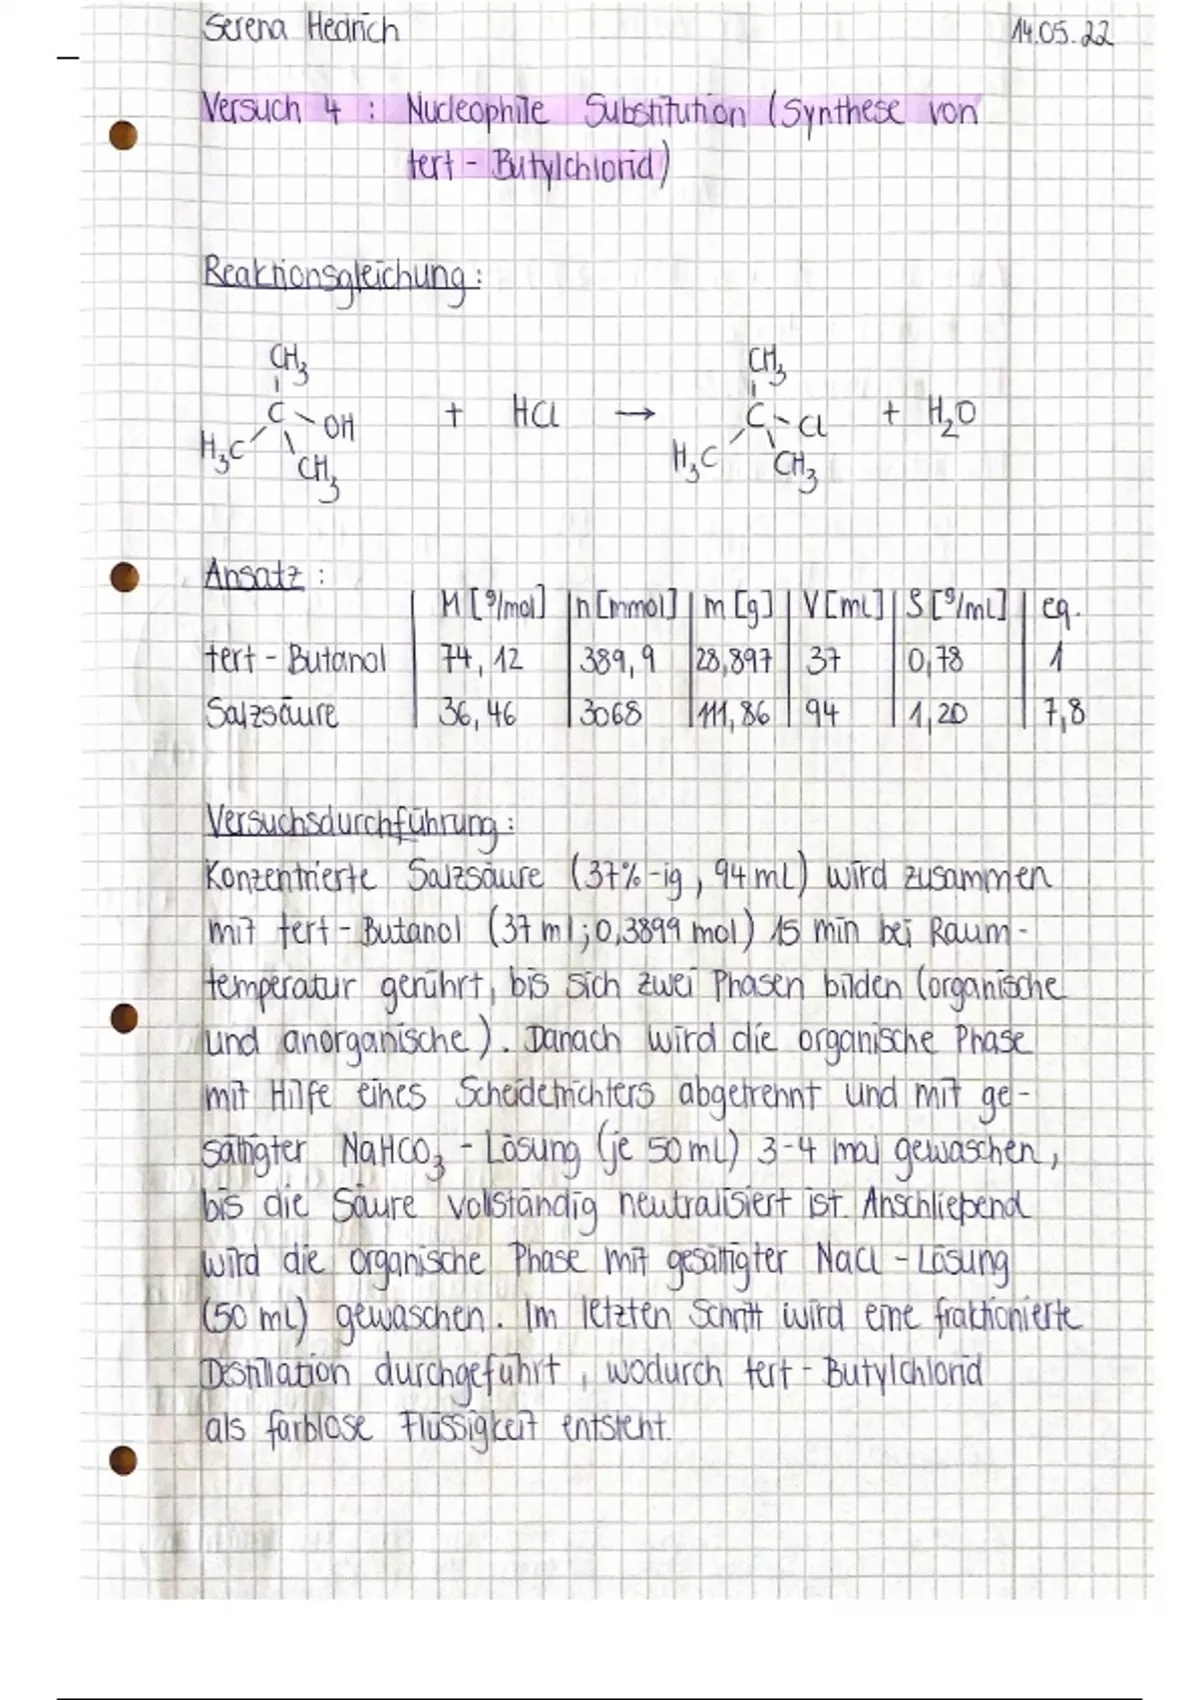 Serena Hedrich 14.05.22
Versuch 4 : Nucleophile Substitution (Synthese von
tert - Butylchlorid)
Reaktionsgleichung :
CH₃ CH₃
C - OH + HCl → C - Cl + H₂O
H₃C CH₃ H₃C CH₃
Ansatz :
M [g/mol] n [mmol] m [g] V [mL] S [g/mL] eq.
tert - Butanol 74,12 389,9 28,897 37 0,78 1
Salzsäure 36,46 3068 111,86 94 1,20 7,8
Versuchsdurchführung :
Konzentrierte Salzsäure (37%-ig, 94 mL) wird zusammen
mit tert - Butanol (37 ml; 0,3899 mol) 15 min bei Raum-
temperatur gerührt, bis sich zwei Phasen bilden (organische
und anorganische). Danach wird die organische Phase
mit Hilfe eines Scheidetrichters abgetrennt und mit ge-
sättigter NaHCO₃ - Lösung (je 50 mL) 3-4 mal gewaschen,
bis die Säure vollständig neutralisiert ist. Anschließend
wird die organische Phase mit gesättigter NaCl - Lösung
(50 mL) gewaschen. Im letzten Schritt wird eine fraktionierte
Destillation durchgeführt, wodurch tert - Butylchlorid
als farblose Flüssigkeit entsteht.